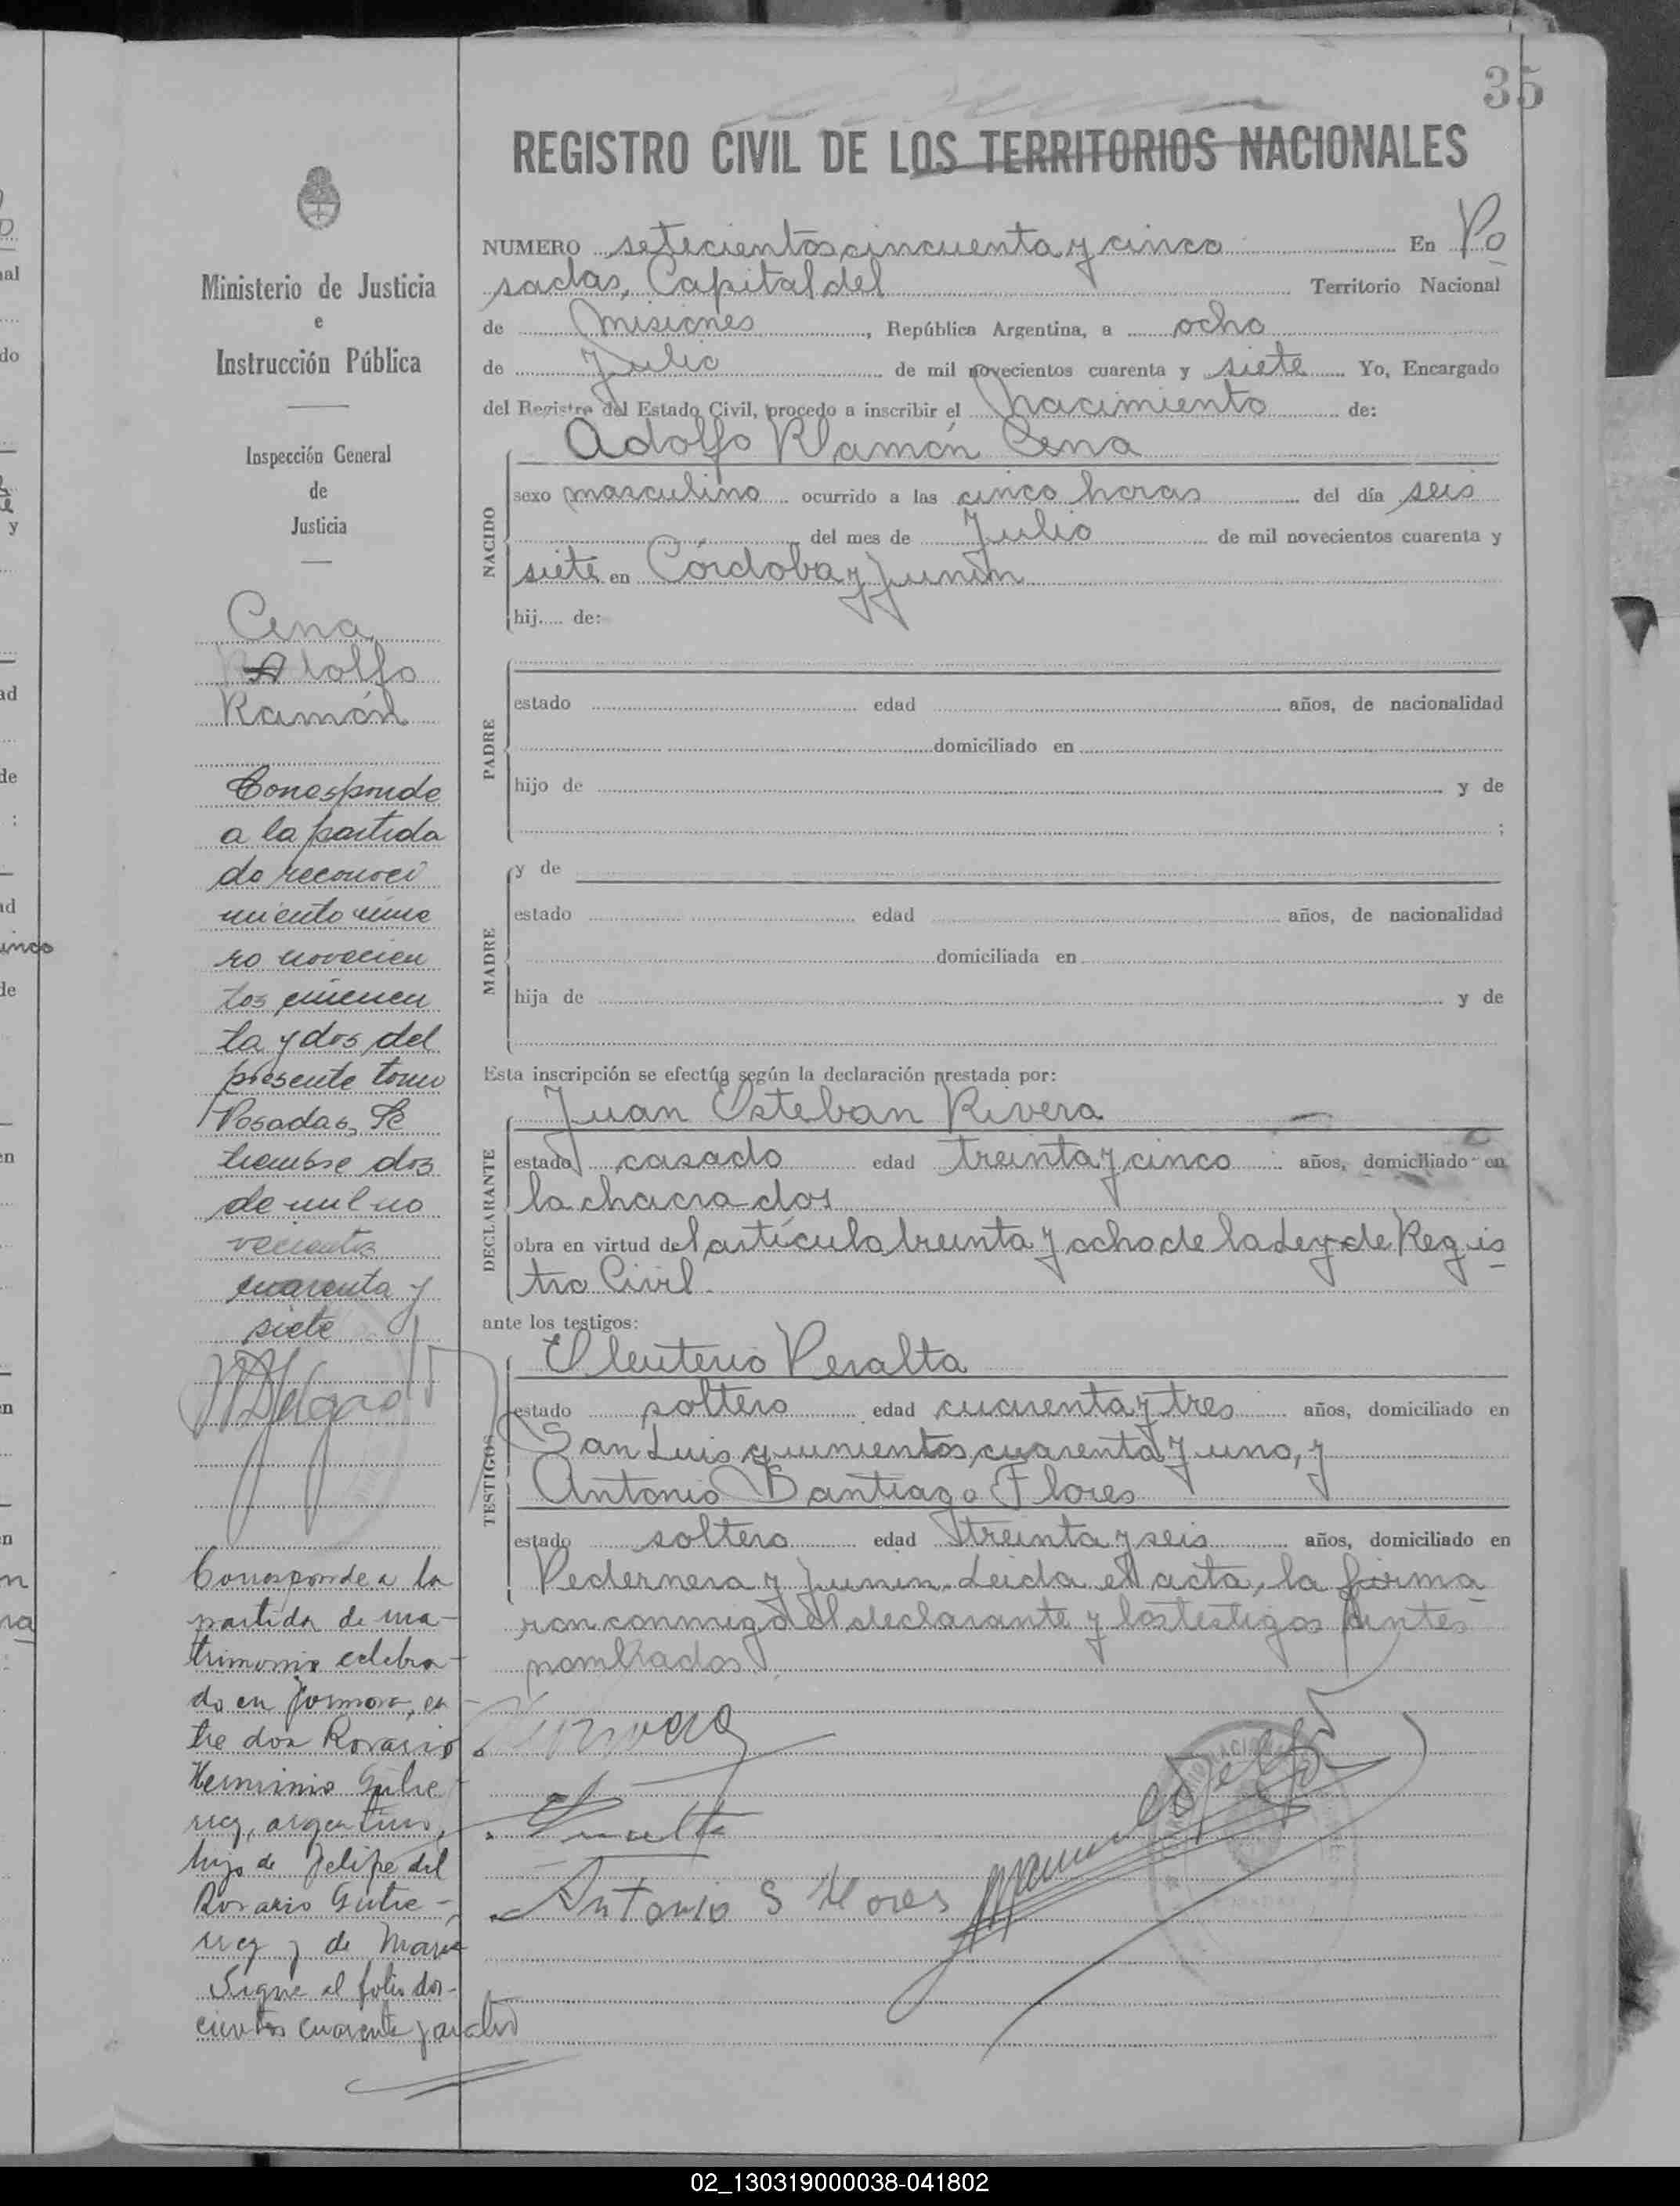 35
REGISTRO CIVIL DE LOS TERRITORIOS NACIONALES
NUMERO setecientos cincuenta y cinco En Po
sadas, Capital del Territorio Nacional
de Misiones, República Argentina, a ocho
de Julio de mil novecientos cuarenta y siete Yo, Encargado
del Registro del Estado Civil, procedo a inscribir el nacimiento de:
Adolfo Ramón Cena
NACIDO
sexo masculino ocurrido a las cinco horas del día seis
del mes de Julio de mil novecientos cuarenta y
siete en Córdoba y Junín
hij.... de:
PADRE
estado edad años, de nacionalidad
domiciliado en
hijo de y de
;
MADRE
y de
estado edad años, de nacionalidad
domiciliada en
hija de y de
Esta inscripción se efectúa según la declaración prestada por:
DECLARANTE
Juan Esteban Rivera
estado casado edad treinta y cinco años, domiciliado en
la chacra dos
obra en virtud del artículo treinta y ocho de la Ley de Regis
tro Civil.
ante los testigos:
TESTIGOS
Eleuterio Peralta
estado soltero edad cuarenta y tres años, domiciliado en
San Luis quinientos cuarenta y uno, y
Antonio Santiago Flores
estado soltero edad treinta y seis años, domiciliado en
Pedernera y Junín. Leída el acta, la firma
ron conmigo el declarante y los testigos antes
nombrados
Antonio S Flores
Ministerio de Justicia
e
Instrucción Pública
Inspección General
de
Justicia
Cena
Adolfo
Ramón
Corresponde
a la partida
de reconoci
miento núme
ro novecien
tos cincuen
ta y dos del
presente tomo
Posadas, Se
tiembre dos
de mil no
vecientos
cuarenta y
siete
Corresponde a la
partida de ma-
trimonio celebra-
do en Formosa, en
tre don Rosario
Herminio Gutie
rrez, argentino,
hijo de Felipe del
Rosario Gutie-
rrez y de María
Sigue al folio dos-
cientos cuarenta y cuatro
02_130319000038-041802